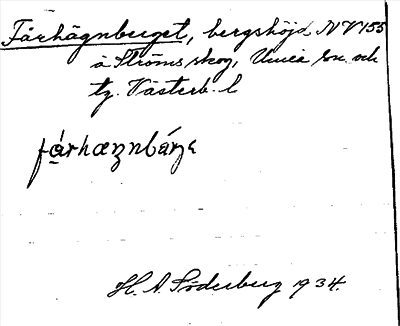 Fårhägnberget, bergshöjd NV 155
å Ströms skog, Umeå sn. och
tg. Västerb. l
H. A. Söderberg 1934.